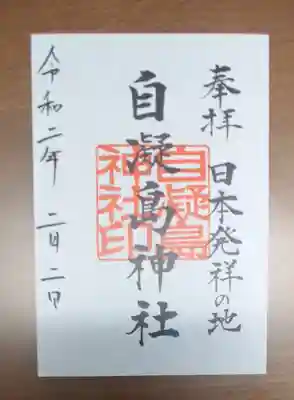 奉拝 日本発祥の地
自凝島神社
自凝島
神社印
令和二年 二月二日